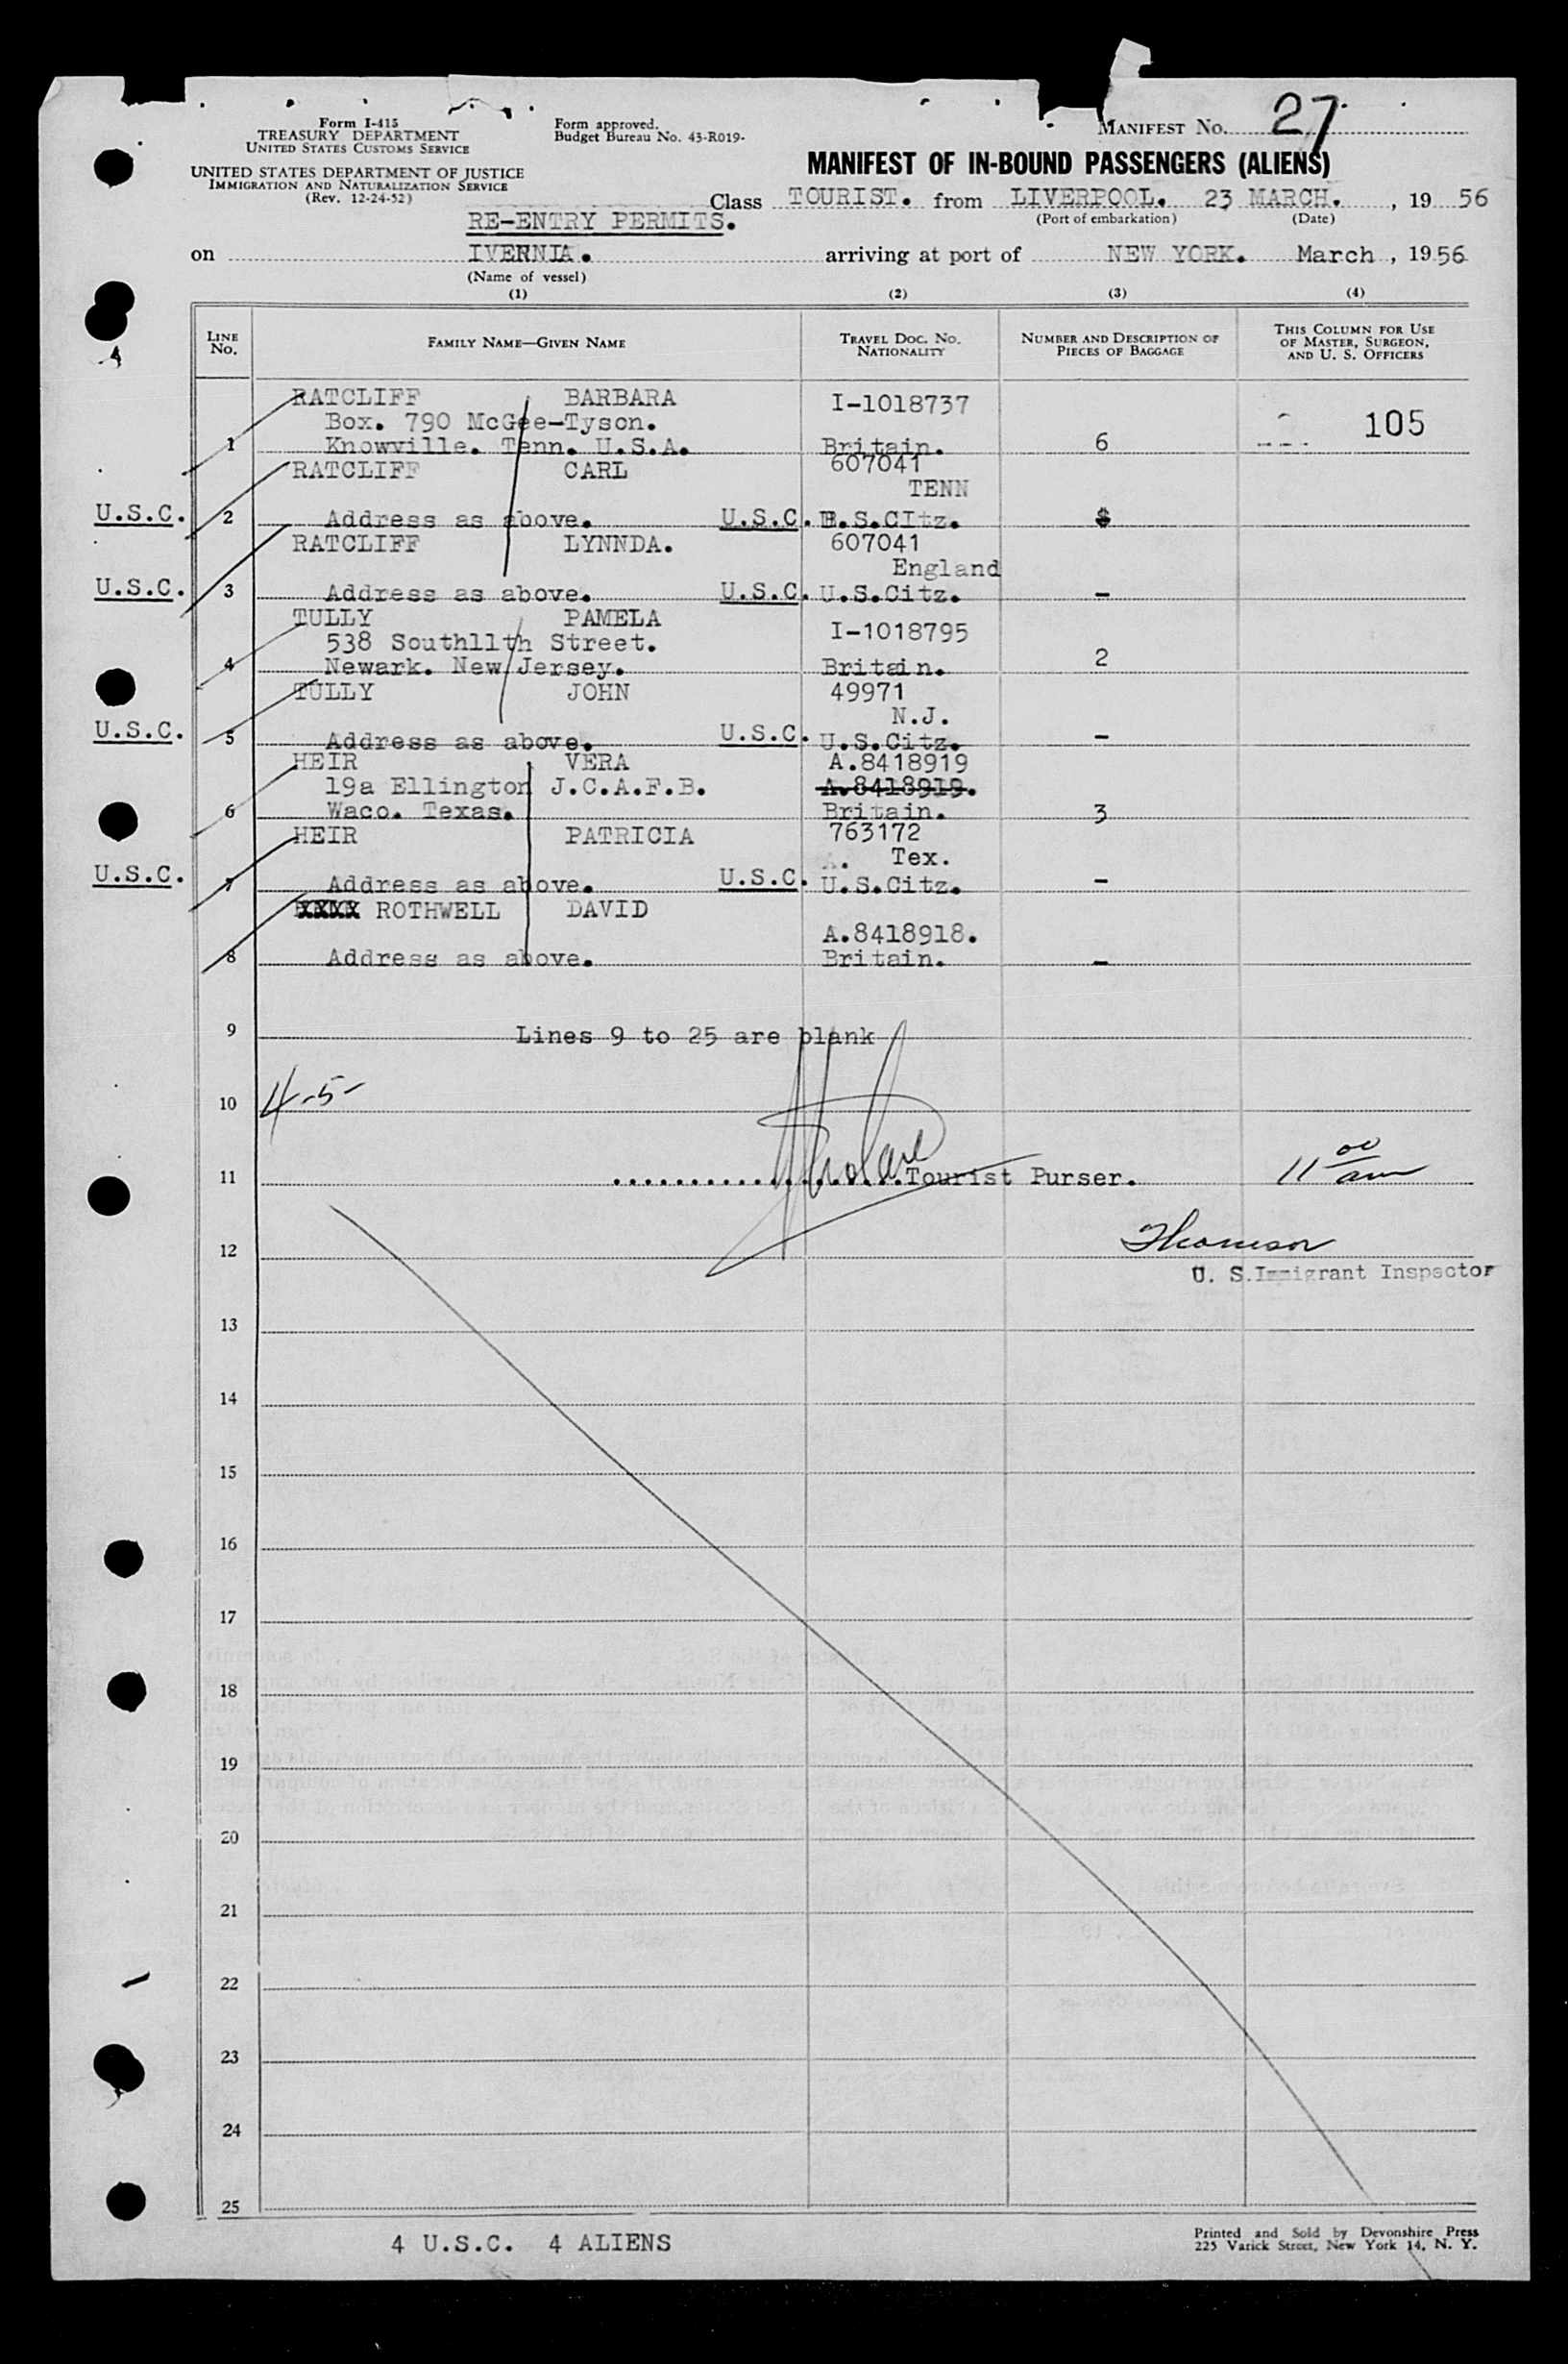 Form I-415
TREASURY DEPARTMENT
UNITED STATES CUSTOMS SERVICE
UNITED STATES DEPARTMENT OF JUSTICE
IMMIGRATION AND NATURALIZATION SERVICE
(Rev. 12-24-52)
Form approved.
Budget Bureau No. 43-R019-
MANIFEST NO. 27
MANIFEST OF IN-BOUND PASSENGERS (ALIENS)
Class TOURIST. from LIVERPOOL. 23 MARCH. , 19 56
(Port of embarkation) (Date)
RE-ENTRY PERMITS.
on IVERNIA. arriving at port of NEW YORK. March , 19 56
(Name of vessel)
(1) (2) (3) (4)
LINE NO. FAMILY NAME—GIVEN NAME TRAVEL DOC. NO. NATIONALITY NUMBER AND DESCRIPTION OF PIECES OF BAGGAGE THIS COLUMN FOR USE OF MASTER, SURGEON, AND U. S. OFFICERS
RATCLIFF BARBARA I-1018737
Box. 790 McGee-Tyson. 105
1 Knowville. Tenn. U.S.A. Britain. 6
RATCLIFF CARL 607041
TENN
U.S.C. 2 Address as above. U.S.C. U.S.CItz.
RATCLIFF LYNNDA. 607041
England
U.S.C. 3 Address as above. U.S.C. U.S.Citz. -
TULLY PAMELA I-1018795
538 South11th Street.
4 Newark. New Jersey. Britain. 2
TULLY JOHN 49971
N.J.
U.S.C. 5 Address as above. U.S.C. U.S.Citz. -
HEIR VERA A.8418919
19a Ellington J.C.A.F.B. A.8418919.
6 Waco. Texas. Britain. 3
HEIR PATRICIA 763172
A. Tex.
U.S.C. 7 Address as above. U.S.C. U.S.Citz. -
XXXX ROTHWELL DAVID
A.8418918.
8 Address as above. Britain. -
9 Lines 9 to 25 are blank
10 4-5-
11 Tourist Purser. 11 00 am
12
U. S. Immigrant Inspector
13
14
15
16
17
18
19
20
21
22
23
24
25
4 U.S.C. 4 ALIENS
Printed and Sold by Devonshire Press
225 Varick Street, New York 14, N. Y.